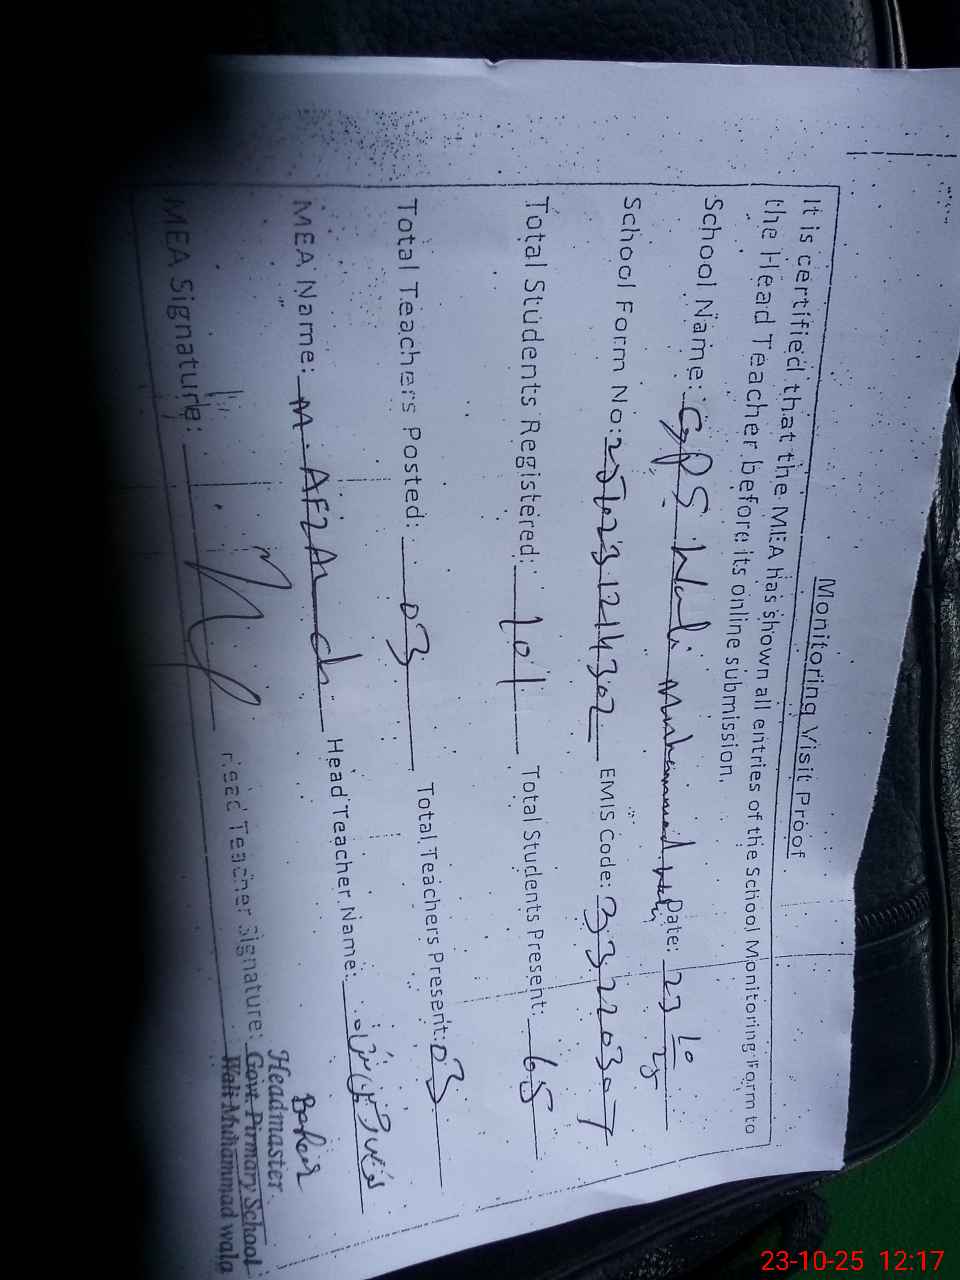 Monitoring Visit Proof
It is certified that the MEA has shown all entries of the School Monitoring Form to
the Head Teacher before its online submission.
School Name: GPS Wali Muhammad Wali Date: 23 10 25
School Form No: EMIS Code: 33220307
Total Students Registered: 101 Total Students Present: 65
Total Teachers Posted: 03 Total Teachers Present: 03
MEA Name: M. AFZAL Head Teacher Name:
MEA Signature: Head Teacher Signature:
Headmaster
Govt. Pirmary School
Wali Muhammad wala
23-10-25 12:17